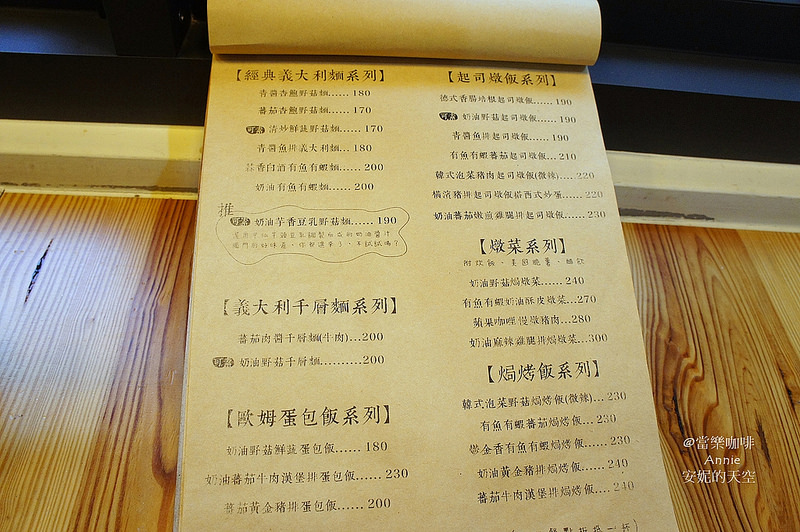 【經典義大利麵系列】
青醬杏鮑野菇麵......180
蕃茄杏鮑野菇麵......170
可素 清炒鮮蔬野菇麵......170
青醬魚排義大利麵...180
蒜香白酒有魚有蝦麵......200
奶油有魚有蝦麵......200
推
可素 奶油芋香豆乳野菇麵......190
【義大利千層麵系列】
蕃茄肉醬千層麵(牛肉)...200
可素 奶油野菇千層麵..........200
【歐姆蛋包飯系列】
奶油野菇鮮蔬蛋包飯......180
奶油蕃茄牛肉漢堡排蛋包飯......230
蕃茄黃金豬排蛋包飯......200
【起司燉飯系列】
德式香腸培根起司燉飯......190
可素 奶油野菇起司燉飯......190
青醬魚排起司燉飯......190
有魚有蝦蕃茄起司燉飯...210
韓式泡菜豬肉起司燉飯(微辣)......220
橫濱豬排起司燉飯搭西式炒蛋......220
奶油蕃茄嫩煎雞腿排起司燉飯......230
【燉菜系列】
奶油野菇焗燉菜......240
有魚有蝦奶油酥皮燉菜...270
蘋果咖哩慢燉豬肉...280
奶油麻辣雞腿排焗燉菜...300
【焗烤飯系列】
韓式泡菜野菇焗烤飯(微辣)...230
有魚有蝦蕃茄焗烤飯...230
鬱金香有魚有蝦焗烤飯......230
奶油黃金豬排焗烤飯......240
蕃茄牛肉漢堡排焗烤飯....240
@當樂咖啡
Annie
安妮的天空